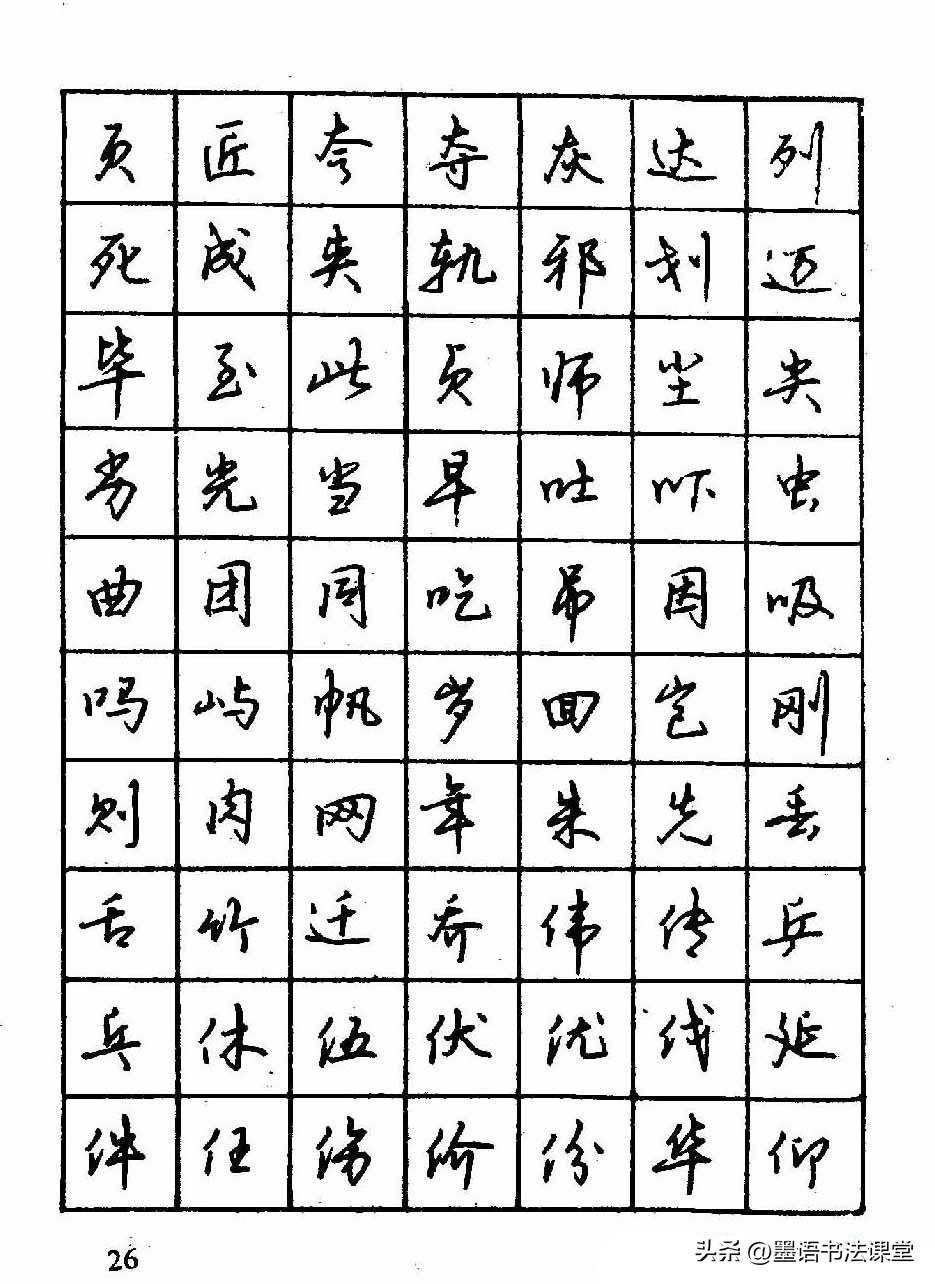 页 匠 夸 夺 灰 达 列
死 成 夹 轨 邪 划 迈
毕 至 此 贞 师 尘 尖
劣 光 当 早 吐 吓 虫
曲 团 同 吃 吊 因 吸
吗 屿 帆 岁 回 岂 刚
则 肉 网 年 朱 先 丢
舌 竹 迁 乔 伟 传 乒
乓 休 伍 伏 优 伐 延
件 任 伤 价 份 华 仰
26
头条 @墨语书法课堂